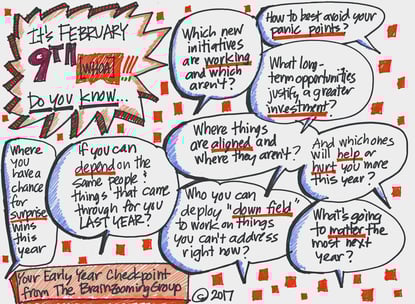 It's FEBRUARY
9TH (WHOA!)
Do you know...
Which new
initiatives
are working
and which
aren't?
How to best avoid your
panic points?
What long-
term opportunities
justify a greater
investment?
Where things
are aligned and
where they aren't?
And which ones
will help or
hurt you more
this year?
Where
you
have a
chance
for
surprise
wins
this
year
If you can
depend on the
same people &
things that came
through for you
LAST YEAR?
Who you can
deploy "down field"
to work on things
you can't address
right now?
What's going
to matter the
most next
year?
Your Early Year Checkpoint
from The Brainzooming Group
© 2017